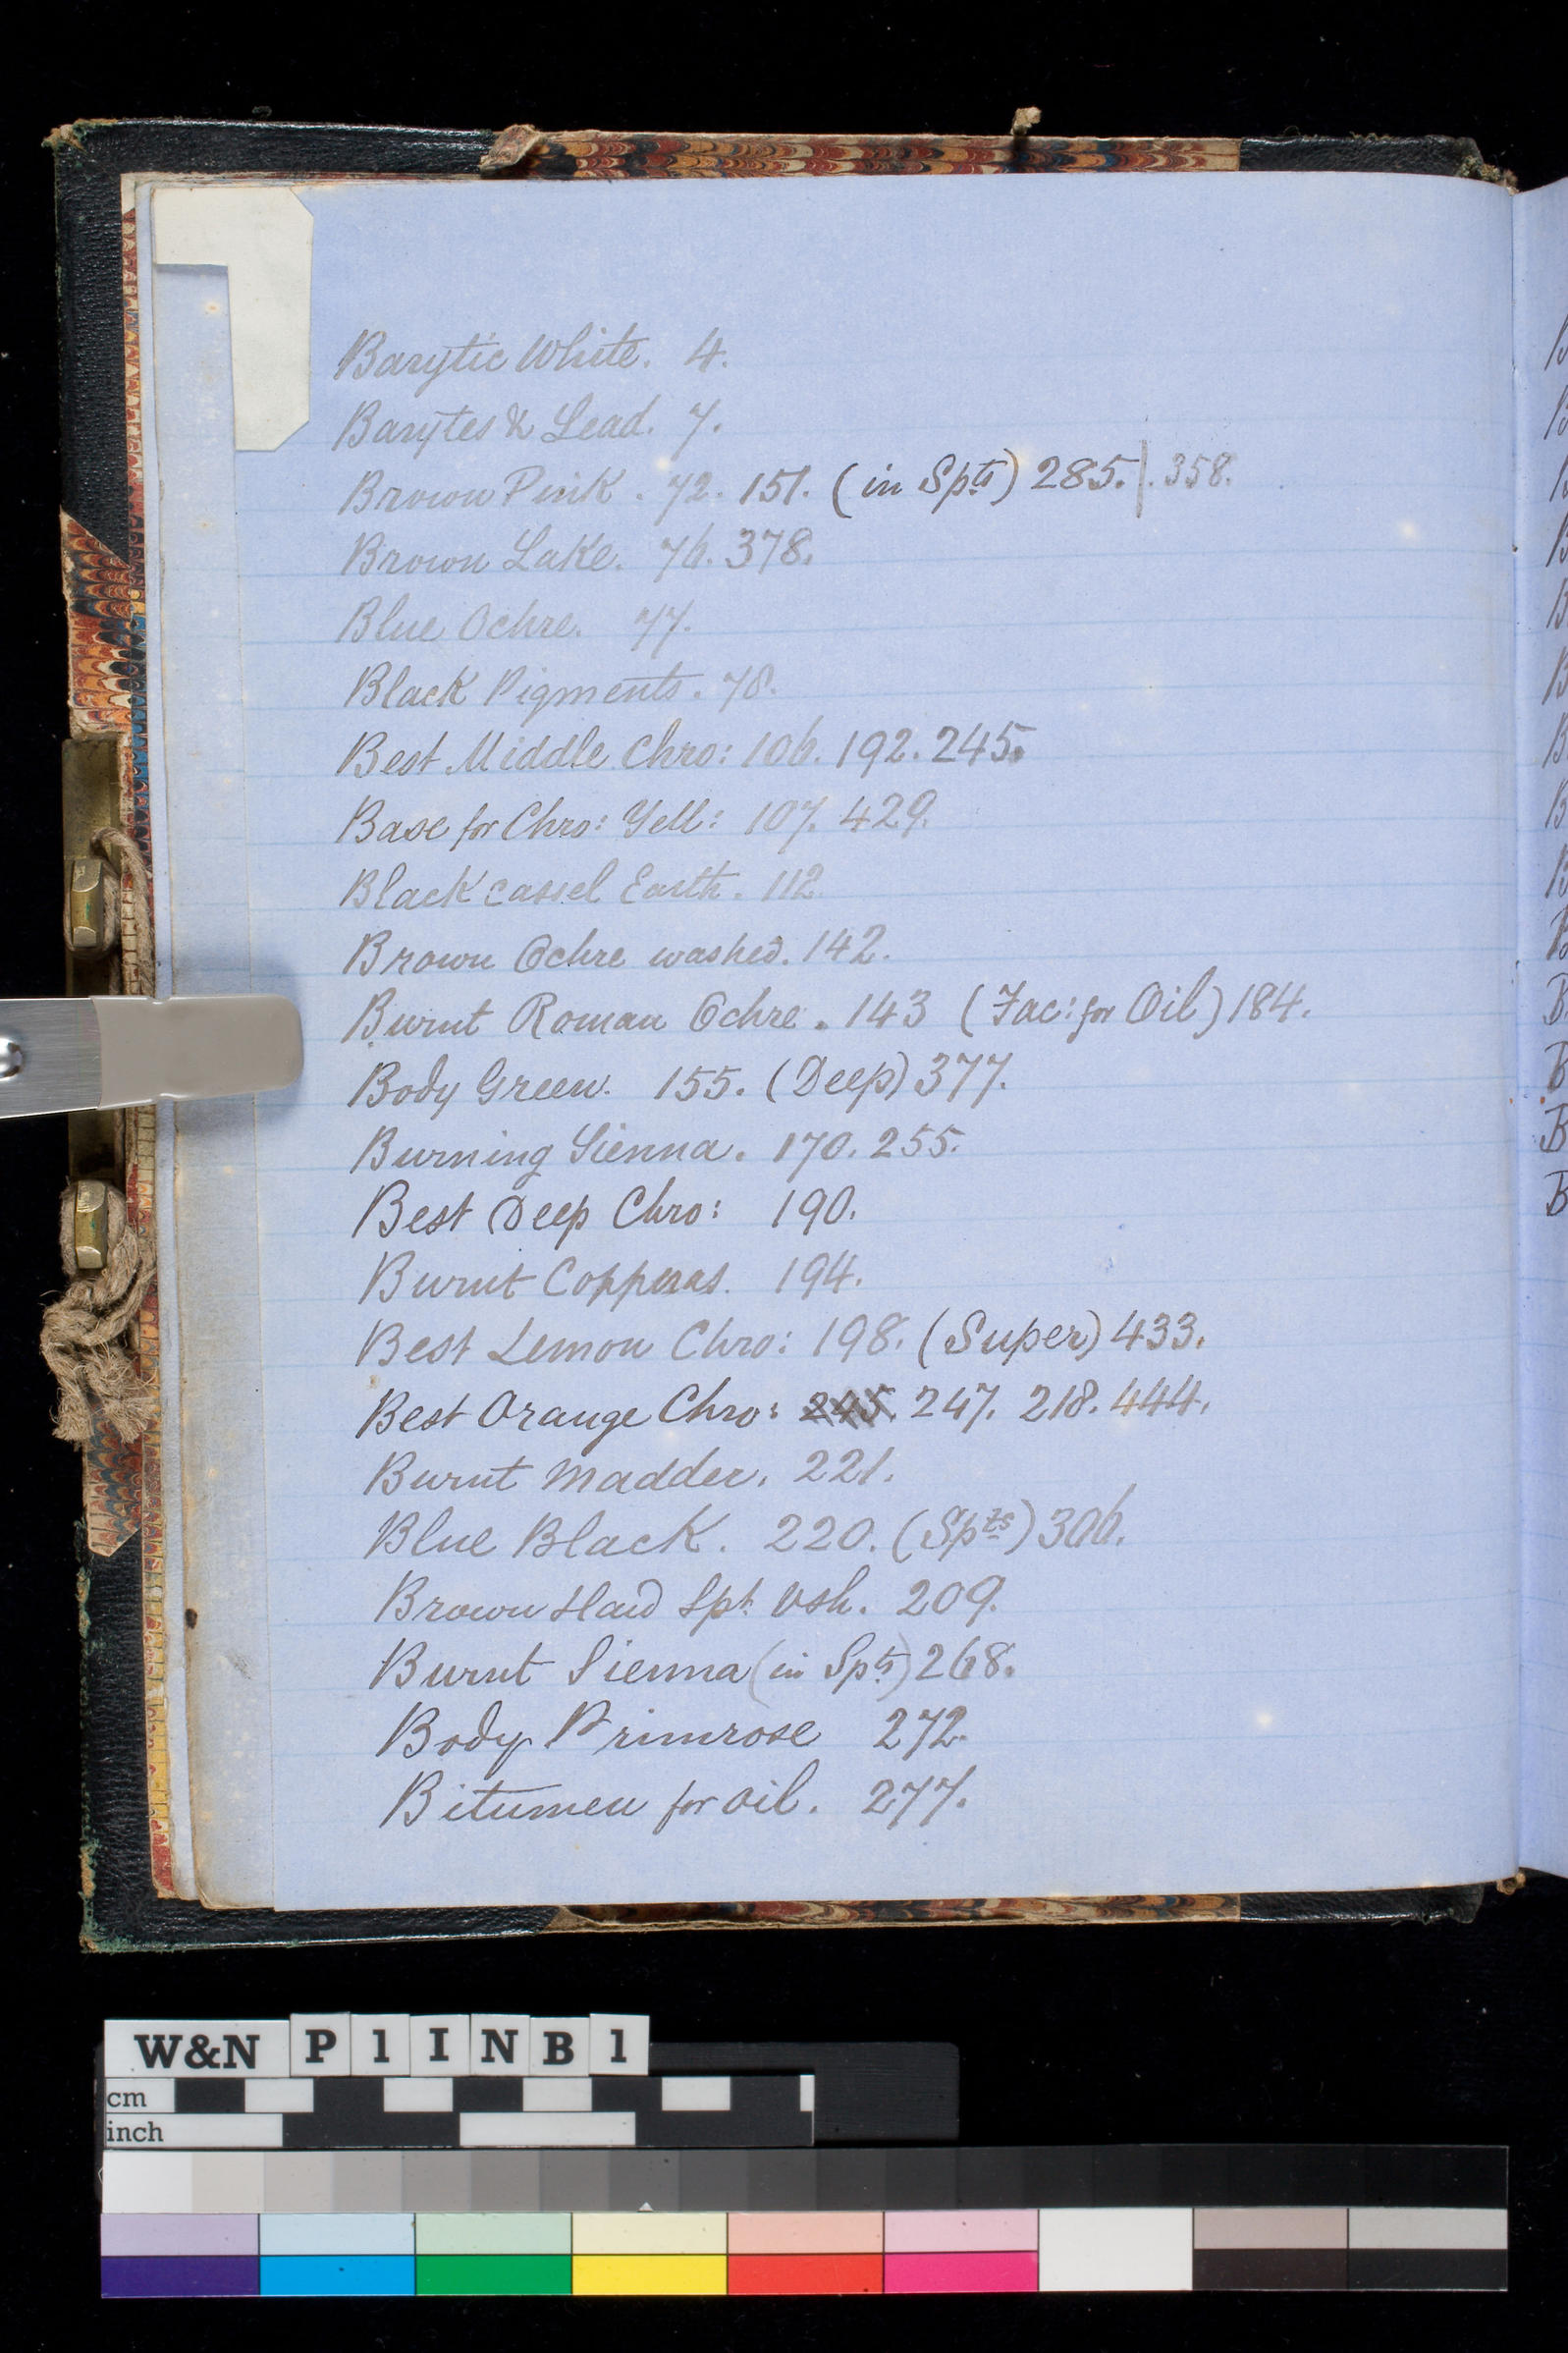 Barytic White. 4.
Barytes & Lead. 7.
Brown Pink. 72. 151. (in Spts) 285. | . 358.
Brown Lake. 76. 378.
Blue Ochre. 77.
Black Pigments. 78.
Best Middle Chro: 106. 192. 245.
Base for Chro: Yell: 107. 429.
Black Cassel Earth. 112
Brown Ochre washed. 142.
Burnt Roman Ochre. 143 (Fac: for Oil) 184.
Body Green. 155. (Deep) 377.
Burning Sienna. 170. 255.
Best Deep Chro: 190.
Burnt Copperas. 194.
Best Lemon Chro: 198. (Super) 433.
Best Orange Chro: 245. 247. 218. 444.
Burnt Madder. 221.
Blue Black. 220. (Spts) 306.
Brown Hard Spt. Vsh. 209.
Burnt Sienna (in Spts) 268.
Body Primrose 272.
Bitumen for Oil. 277.
W&N P 1 I N B 1
cm
inch